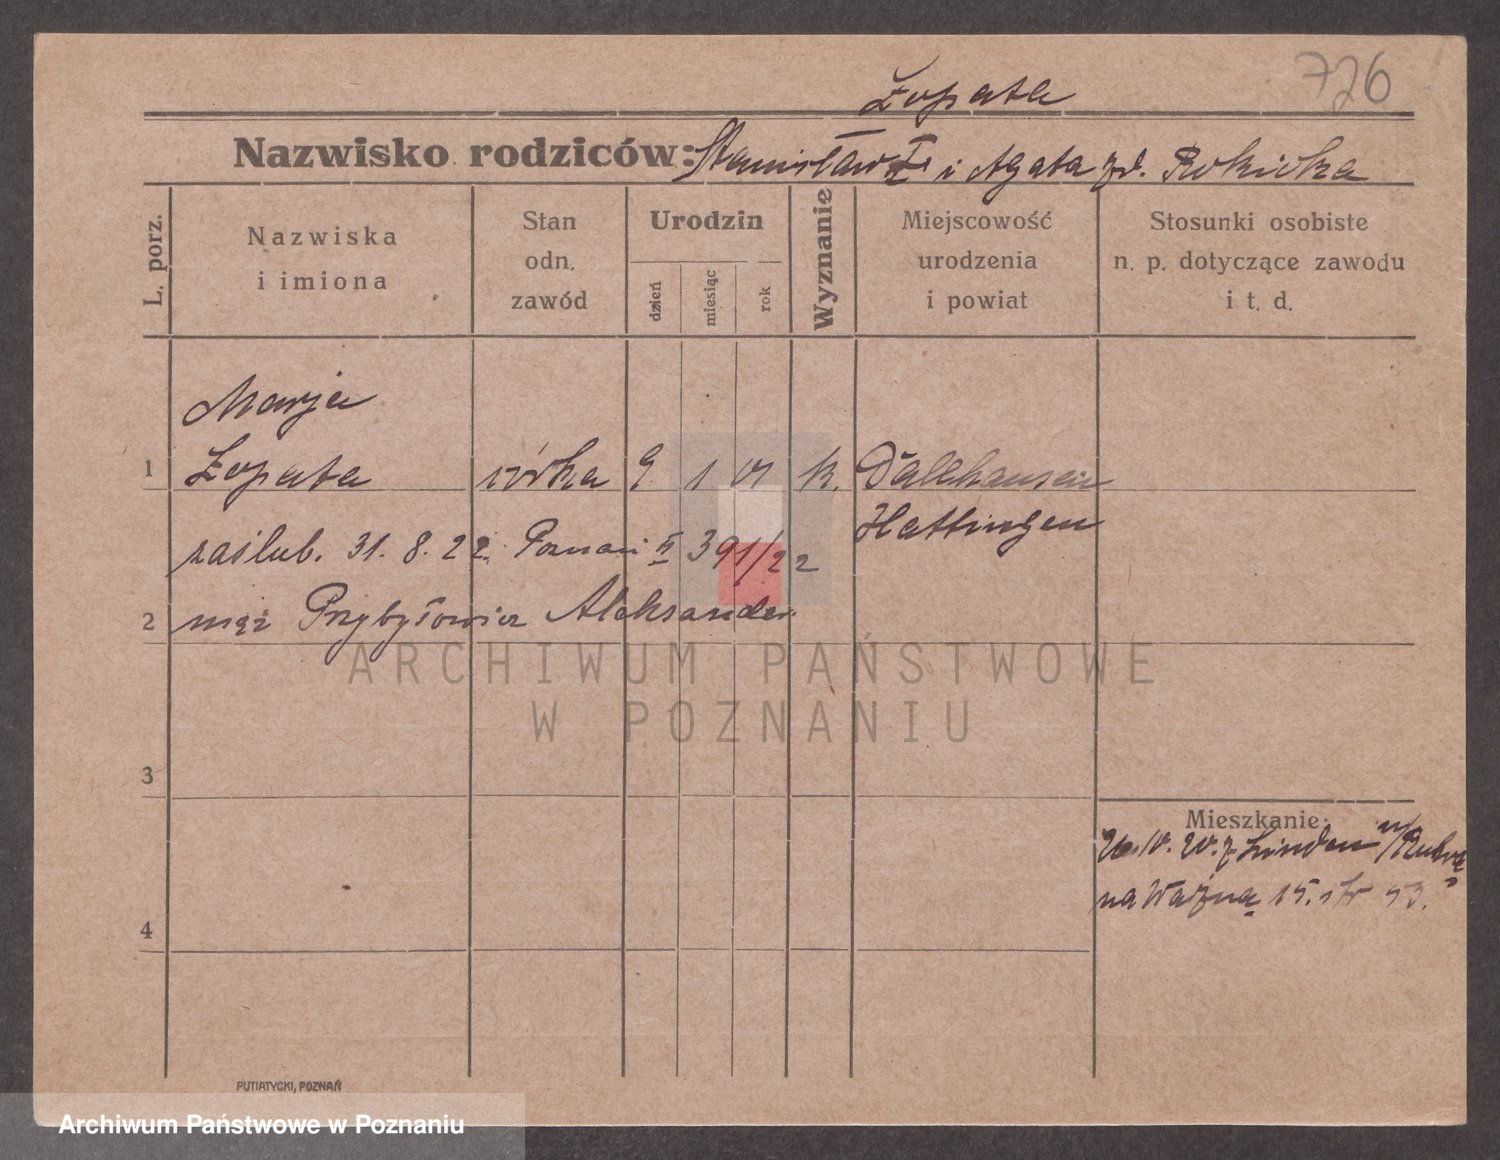 726
Łopata
Nazwisko rodziców: Stanisław Ł. i Agata zd. Rokicka
L. porz.
Nazwiska
i imiona
Stan
odn.
zawód
Urodzin
dzień
miesiąc
rok
Wyznanie
Miejscowość
urodzenia
i powiat
Stosunki osobiste
n. p. dotyczące zawodu
i t. d.
Marja
1 Łopata córka 9 1 01 k. Dalehausen
Hattingen
zaślub. 31. 8. 22. Poznań II 391/22
2 mąż Przybyłowicz Aleksander.
ARCHIWUM PAŃSTWOWE
W POZNANIU
3
Mieszkanie:
20. z Linden n/Ruhrą
na Ważną 15.
4
PUTIATYCKI, POZNAŃ
Archiwum Państwowe w Poznaniu